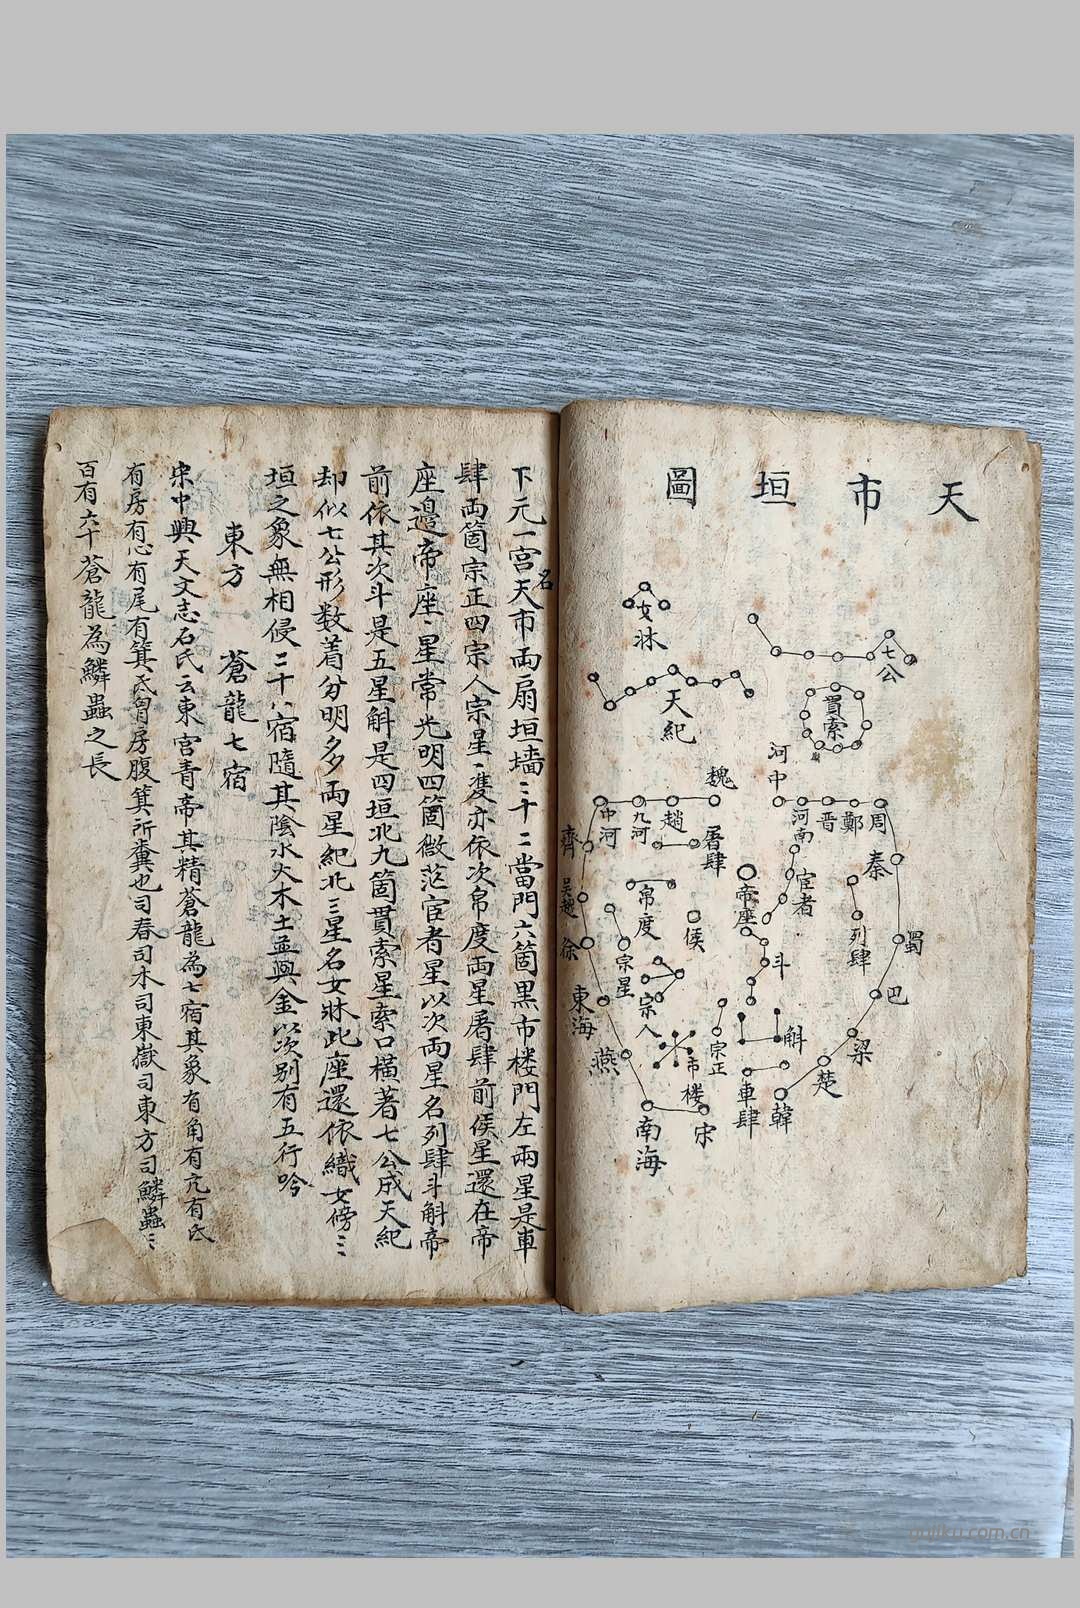 天市垣圖
女牀
七公
天紀
貫索
河中
魏
趙
九河
中河
齊
屠肆
河南
晋
鄭
周
秦
吳越
徐
帛度
侯
帝座
宦者
列肆
蜀
宗星
斗
巴
東海
宗人
燕
宗正
市楼
斛
梁
楚
車肆
韓
宋
南海
下元一宮名天市両扇垣墻二十二當門六箇黒市楼門左兩星是車
肆両箇宗正四宗人宗星一隻亦依次帛度両星屠肆前侯星還在帝
座邉帝座一星常光明四箇微茫宦者星以次両星名列肆斗斛帝
前依其次斗是五星斛是四垣北九箇貫索星索口横著七公成天紀
却似七公形数着分明多両星紀北三星名女牀此座還依織女傍三
垣之象無相侵二十八宿隨其陰水火木土並與金以次别有五行吟
東方 蒼龍七宿
宋中興天文志石氏云東宮青帝其精蒼龍為七宿其象有角有亢有氐
有房有心有尾有箕氐胷房腹箕所糞也司春司木司東嶽司東方司鱗蟲三
百有六十蒼龍為鱗蟲之長
gujiku.com.cn